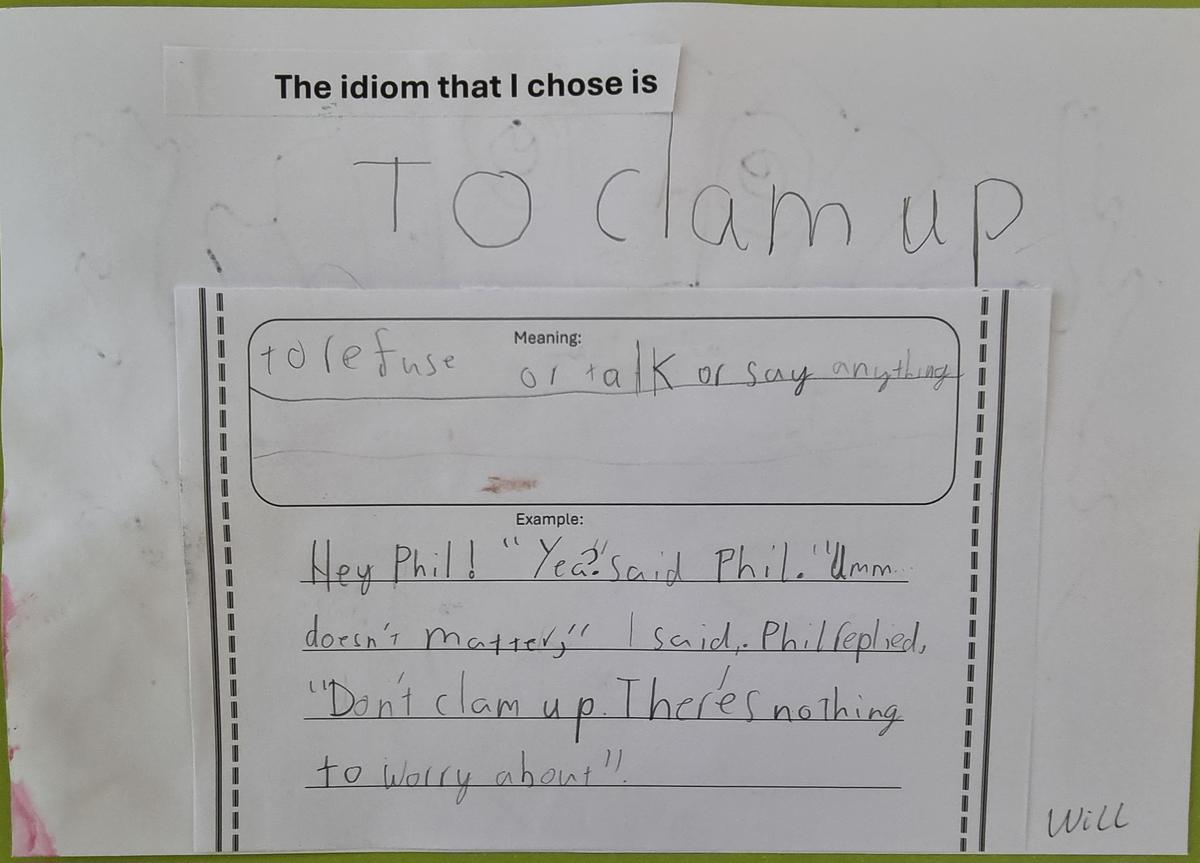 The idiom that I chose is
To clam up
Meaning:
to refuse or talk or say anything
Example:
Hey Phil! "Yea?" said Phil. "Umm...
doesn't matter," I said,. Phil replied,
"Don't clam up. There's nothing
to worry about".
Will